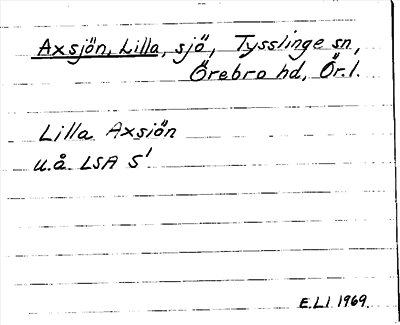 Axsjön, Lilla, sjö, Tysslinge sn,
Örebro hd, Ör. l.
Lilla Axsiön
u.å. LSA S¹
E.Ll. 1969.